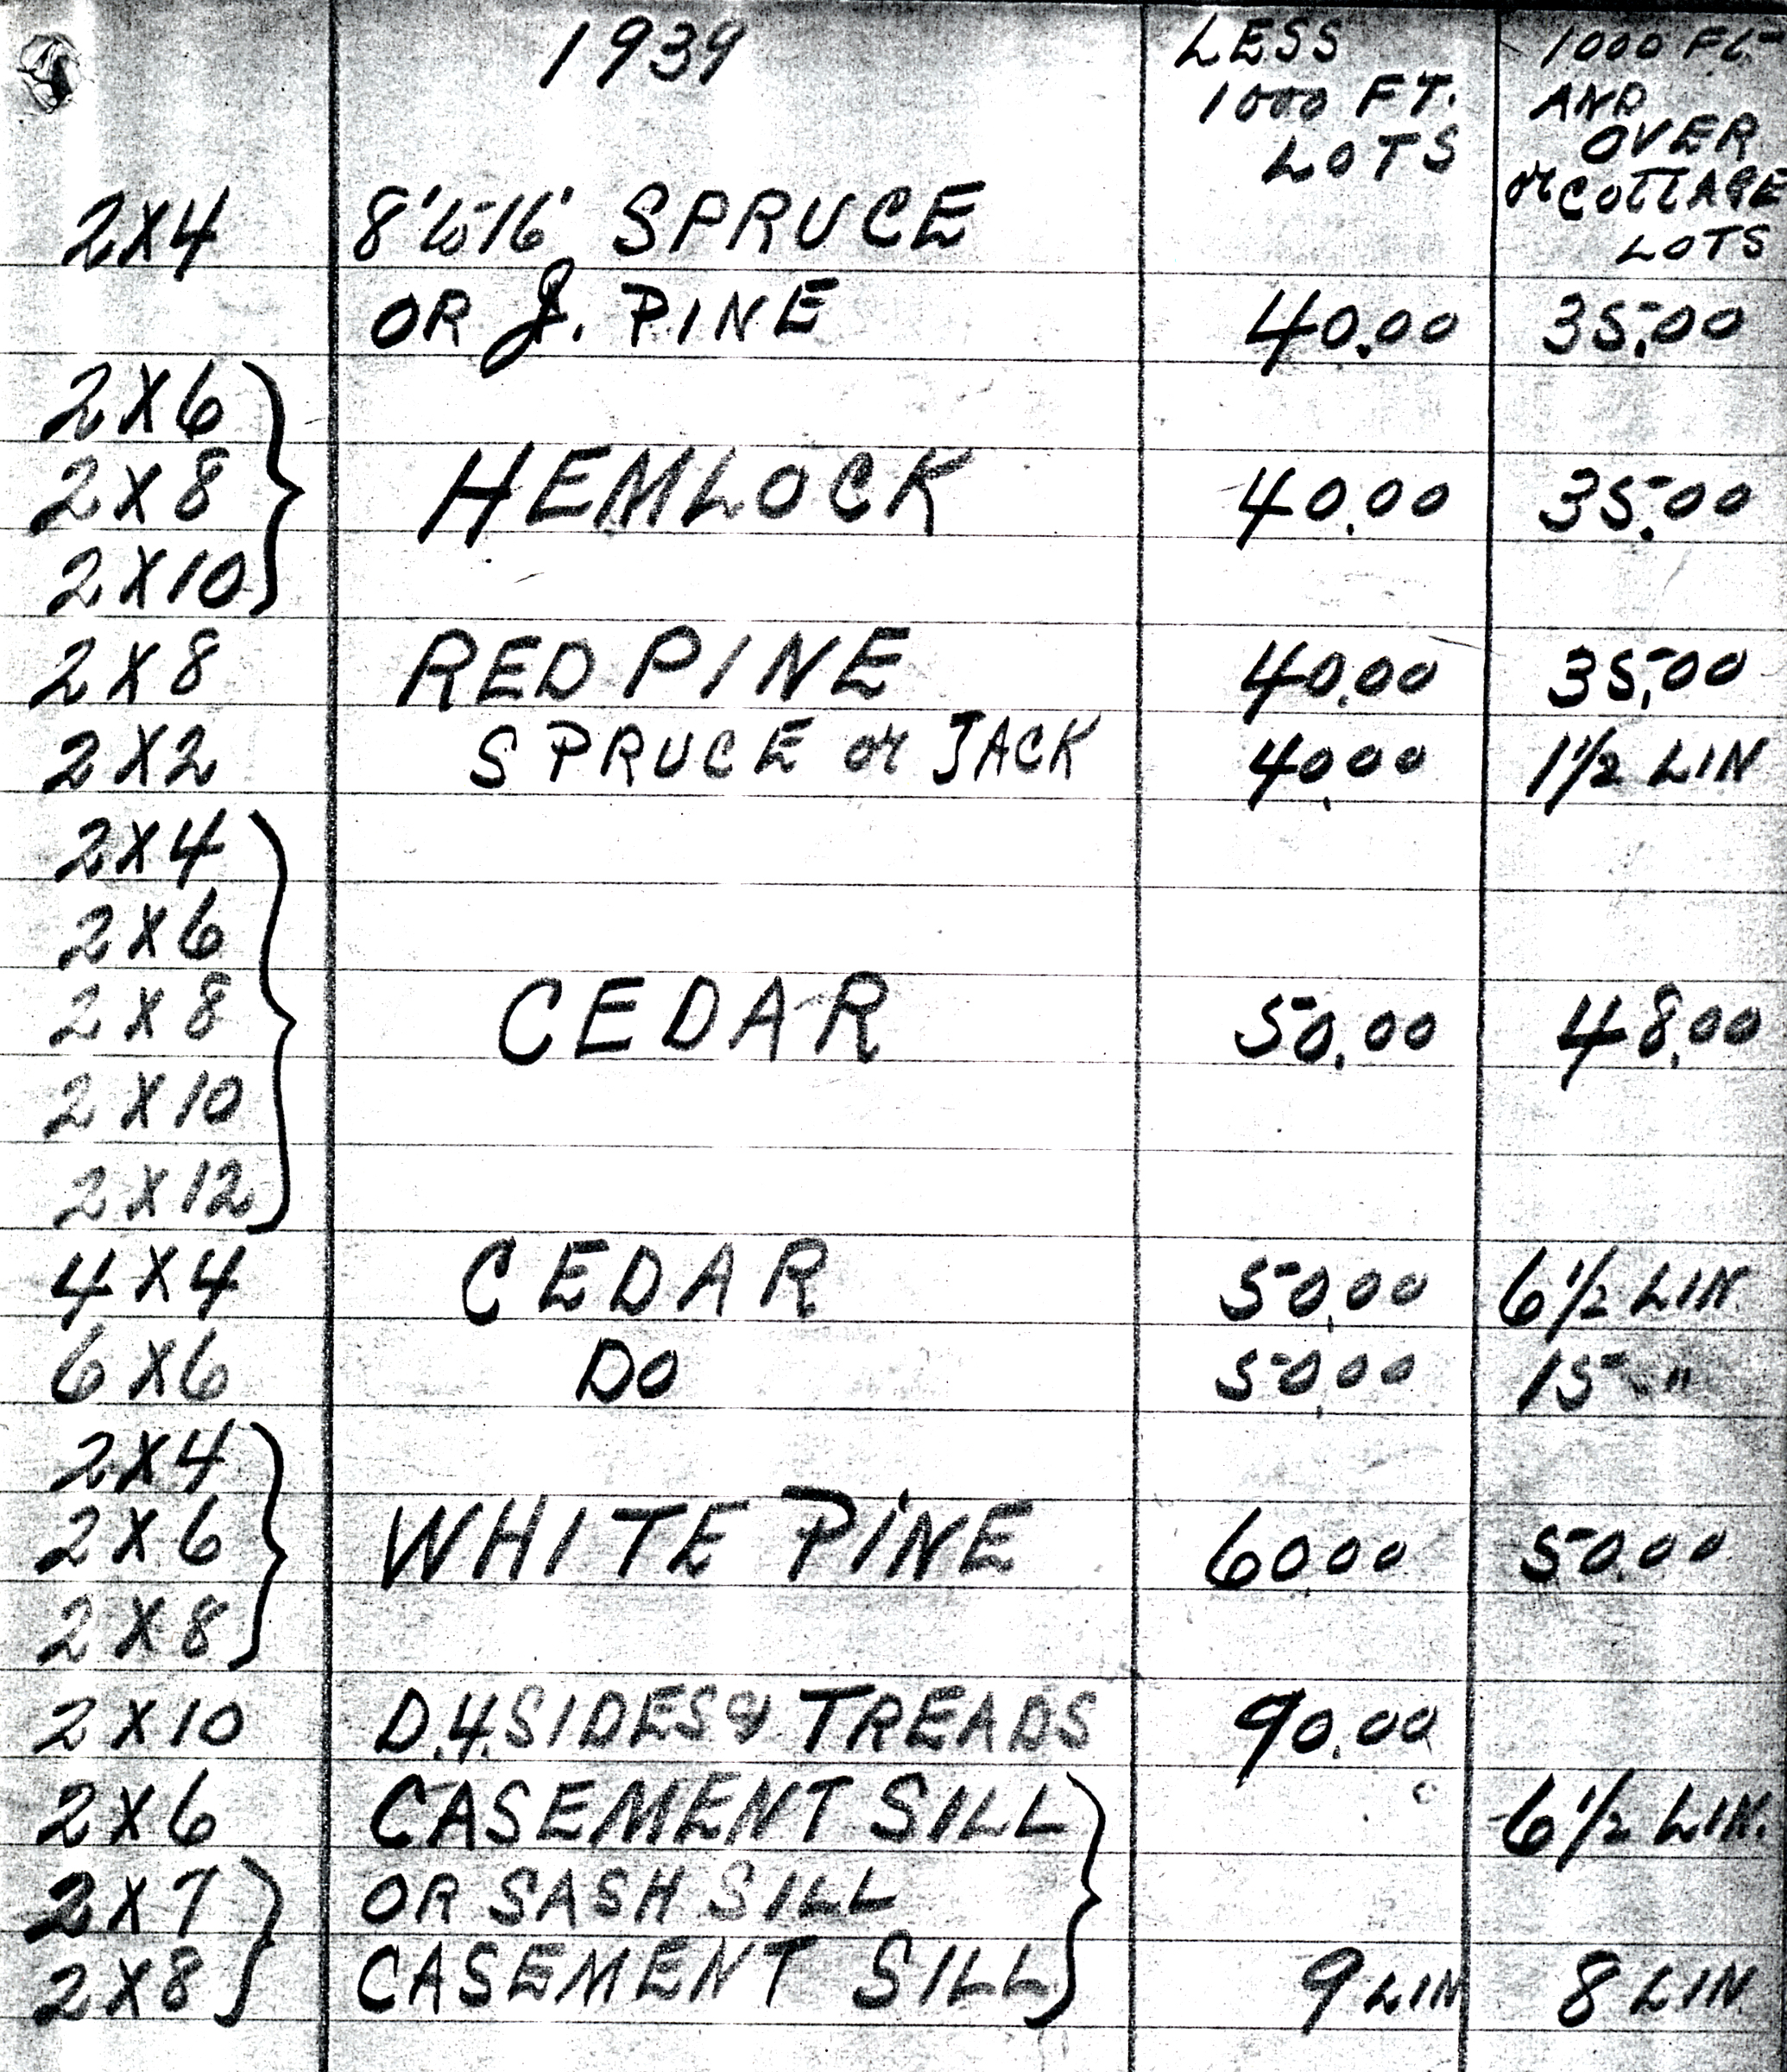 1939 LESS 1000 FT. LOTS 1000 FT AND OVER or COTTAGE LOTS
2X4 8' to 16' SPRUCE
OR J. PINE 40.00 35.00
2X6
2X8 HEMLOCK 40.00 35.00
2X10
2X8 RED PINE 40.00 35.00
2X2 SPRUCE or JACK 40.00 1 1/2 LIN
2X4
2X6
2X8 CEDAR 50.00 48.00
2X10
2X12
4X4 CEDAR 50.00 6 1/2 LIN.
6X6 DO 50.00 15 "
2X4
2X6 WHITE PINE 60.00 50.00
2X8
2X10 D.4.SIDES & TREADS 90.00
2X6 CASEMENT SILL 6 1/2 LIN.
2X7 OR SASH SILL
2X8 CASEMENT SILL 9 LIN 8 LIN.